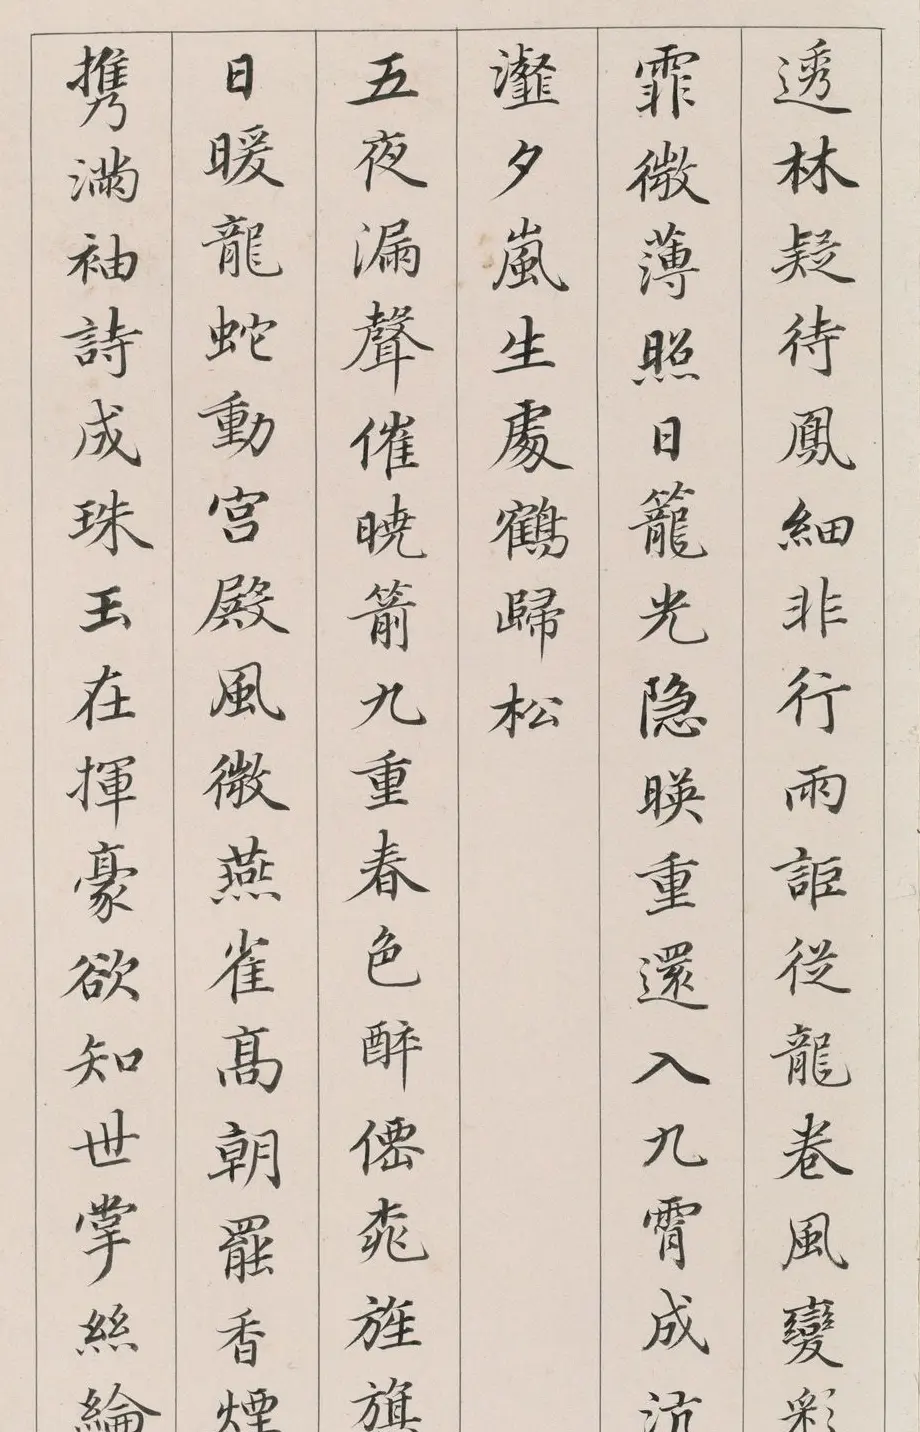 透林疑待鳳細非行雨詎從龍卷風變彩
霏微薄照日籠光隐暎重還入九霄成沆
瀣夕嵐生處鶴歸松
五夜漏聲催曉箭九重春色醉僊桃旌旗
日暖龍蛇動宫殿風微燕雀高朝罷香煙
携滿袖詩成珠玉在揮豪欲知世掌絲綸